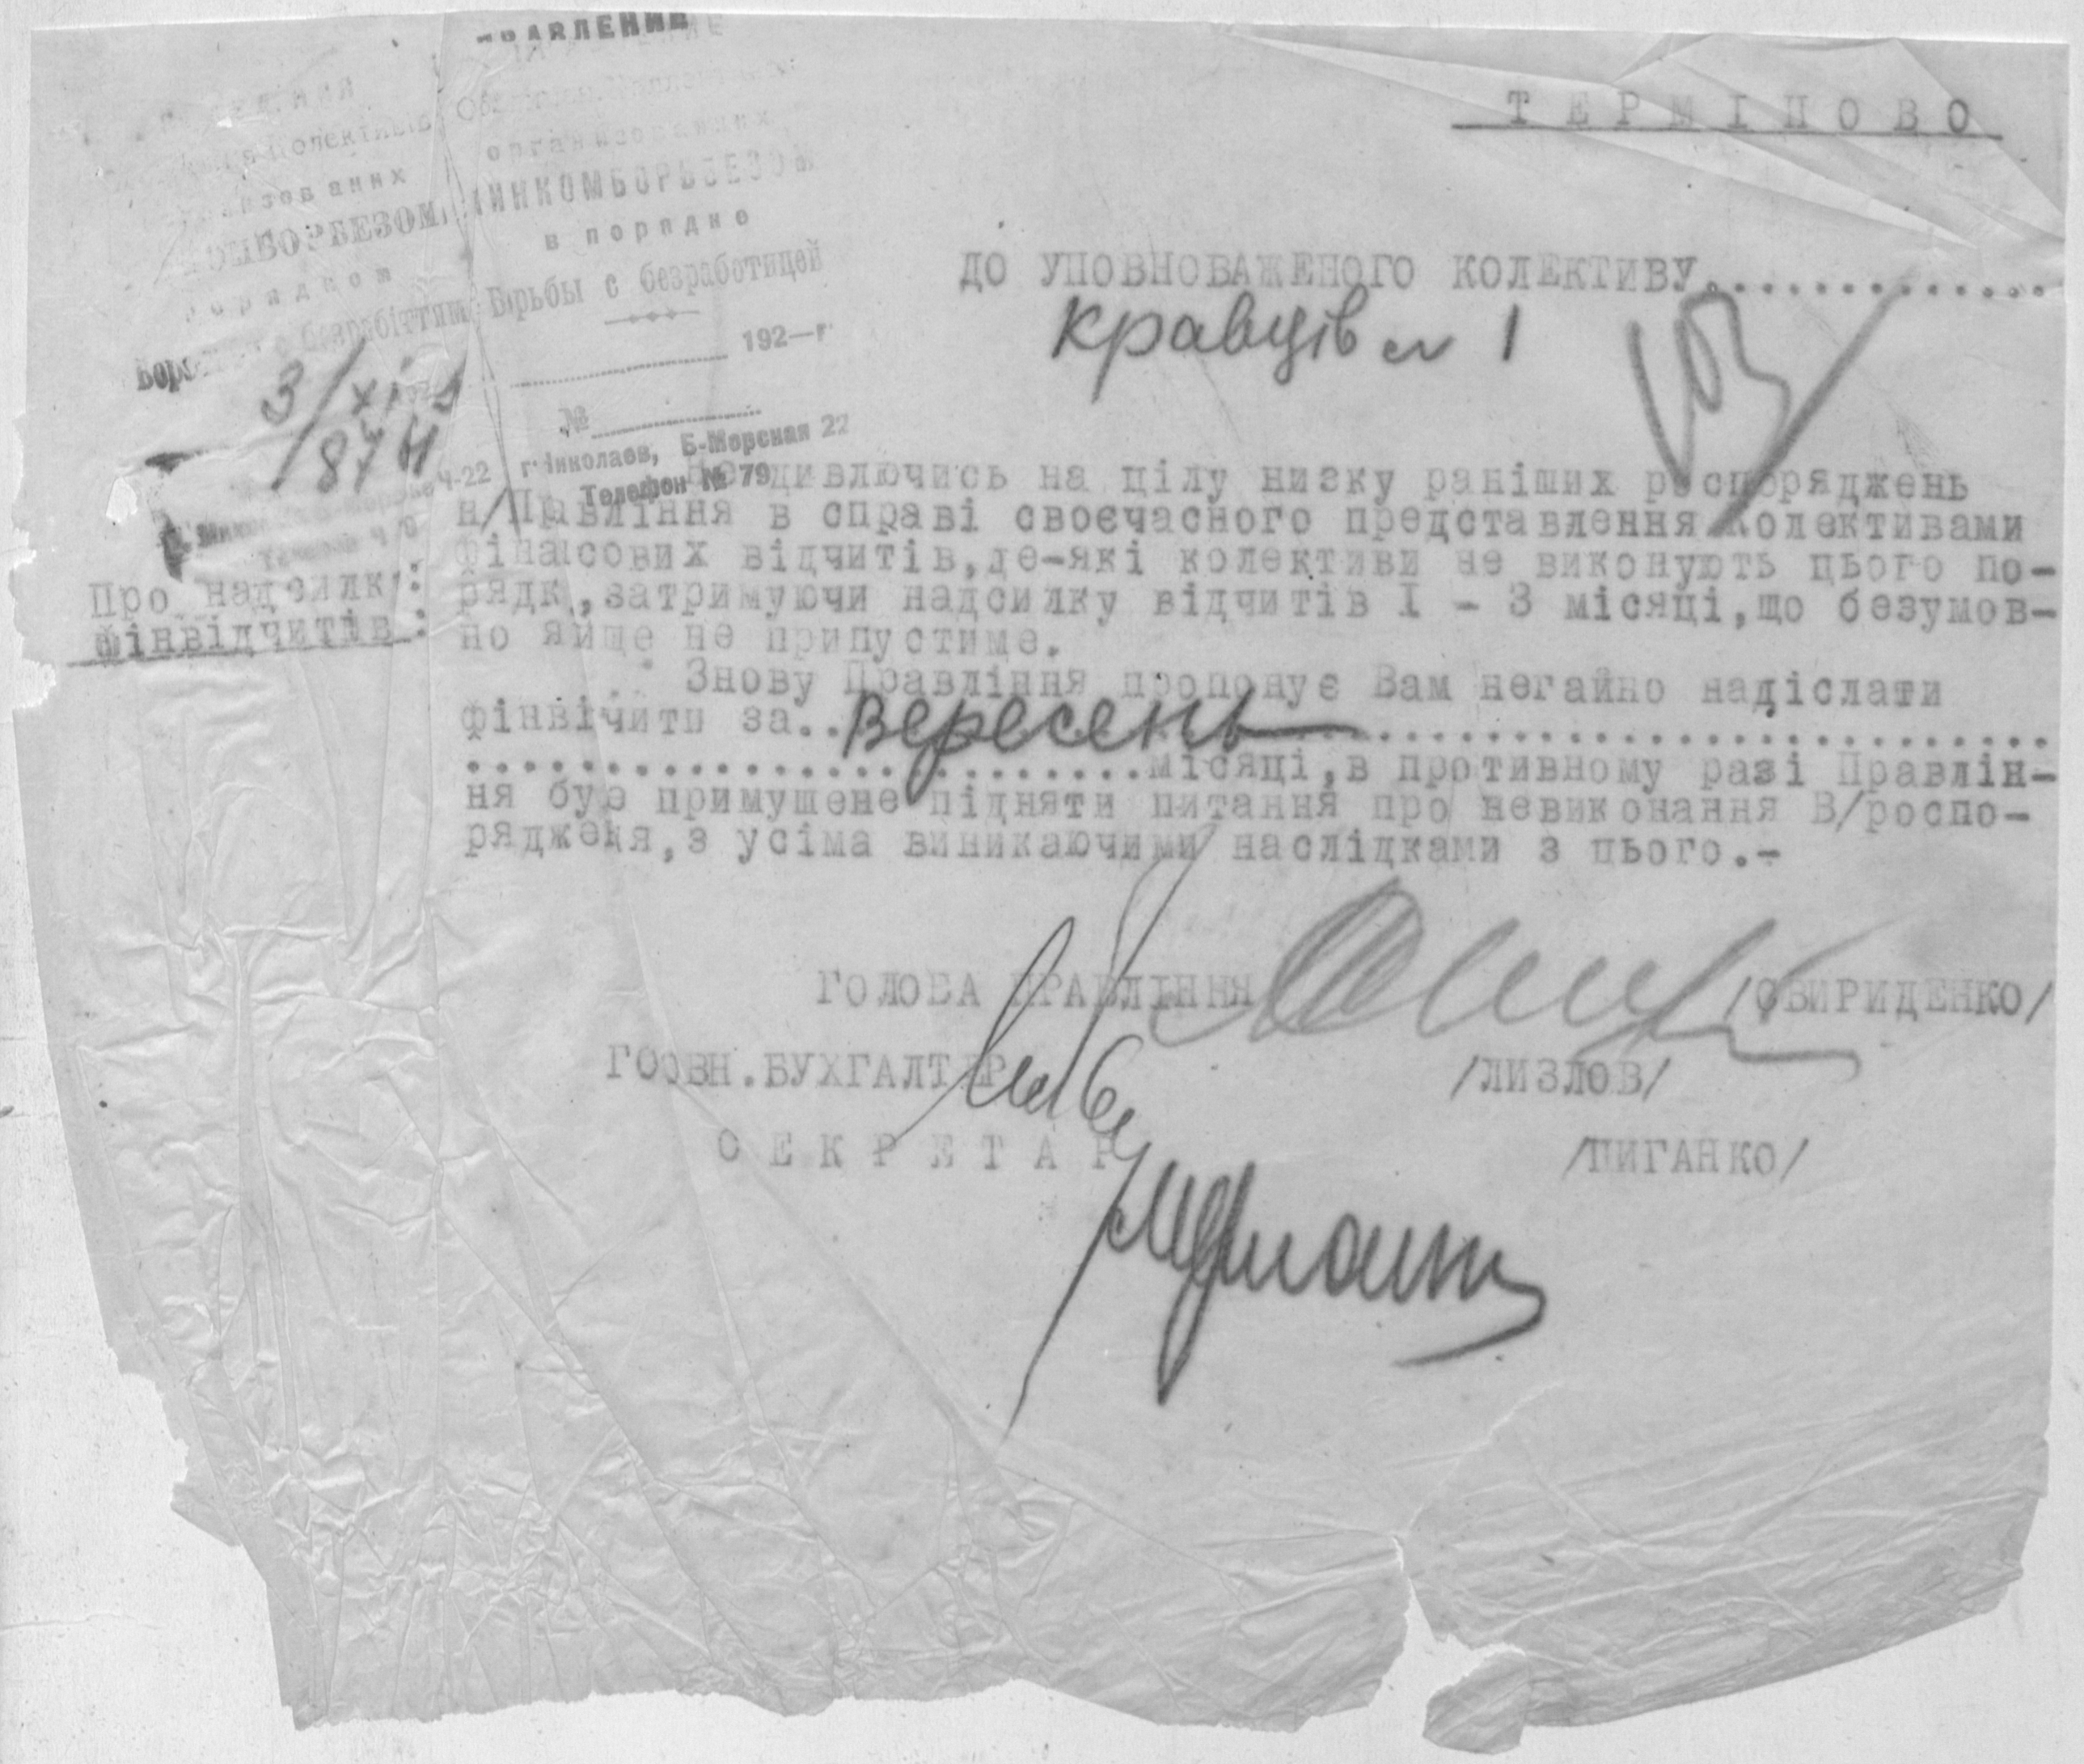 ПРАВЛЕНИЕ
организованных
ИНКОМБОРЬБЕЗОМ
в порядке
Борьбы с безработицей
безробіттям
192—г
3/XI
874
№
Б-Морская 22
Телефон № 79
ТЕРМІНОВО
ДО УПОВНОВАЖЕНОГО КОЛЕКТИВУ..............
Кравців № 1
Про надсилку:
фінвідчитів:
Не дивлючись на цілу низку раніших роспоряджень
н/Правління в справі своєчасного представлення колективами
фінансових відчитів,де-які колективи не виконують цього по-
рядк,затримуючи надсилку відчитів I - 3 місяці,що безумов-
но яйще не припустиме.
Знову Правління пропонує Вам негайно надіслати
фінвічити за.. Вересень ..............................
..........................місяці,в противному разі Правлін-
ня буде примушене підняти питання про невиконання В/роспо-
рядженя,з усіма виникаючими наслідками з цього.-
ГОЛОВА ПРАВЛІННЯ /СВИРИДЕНКО/
ГООВН.БУХГАЛТЕР /ЛИЗЛОВ/
СЕКРЕТАР /ЦИГАНКО/